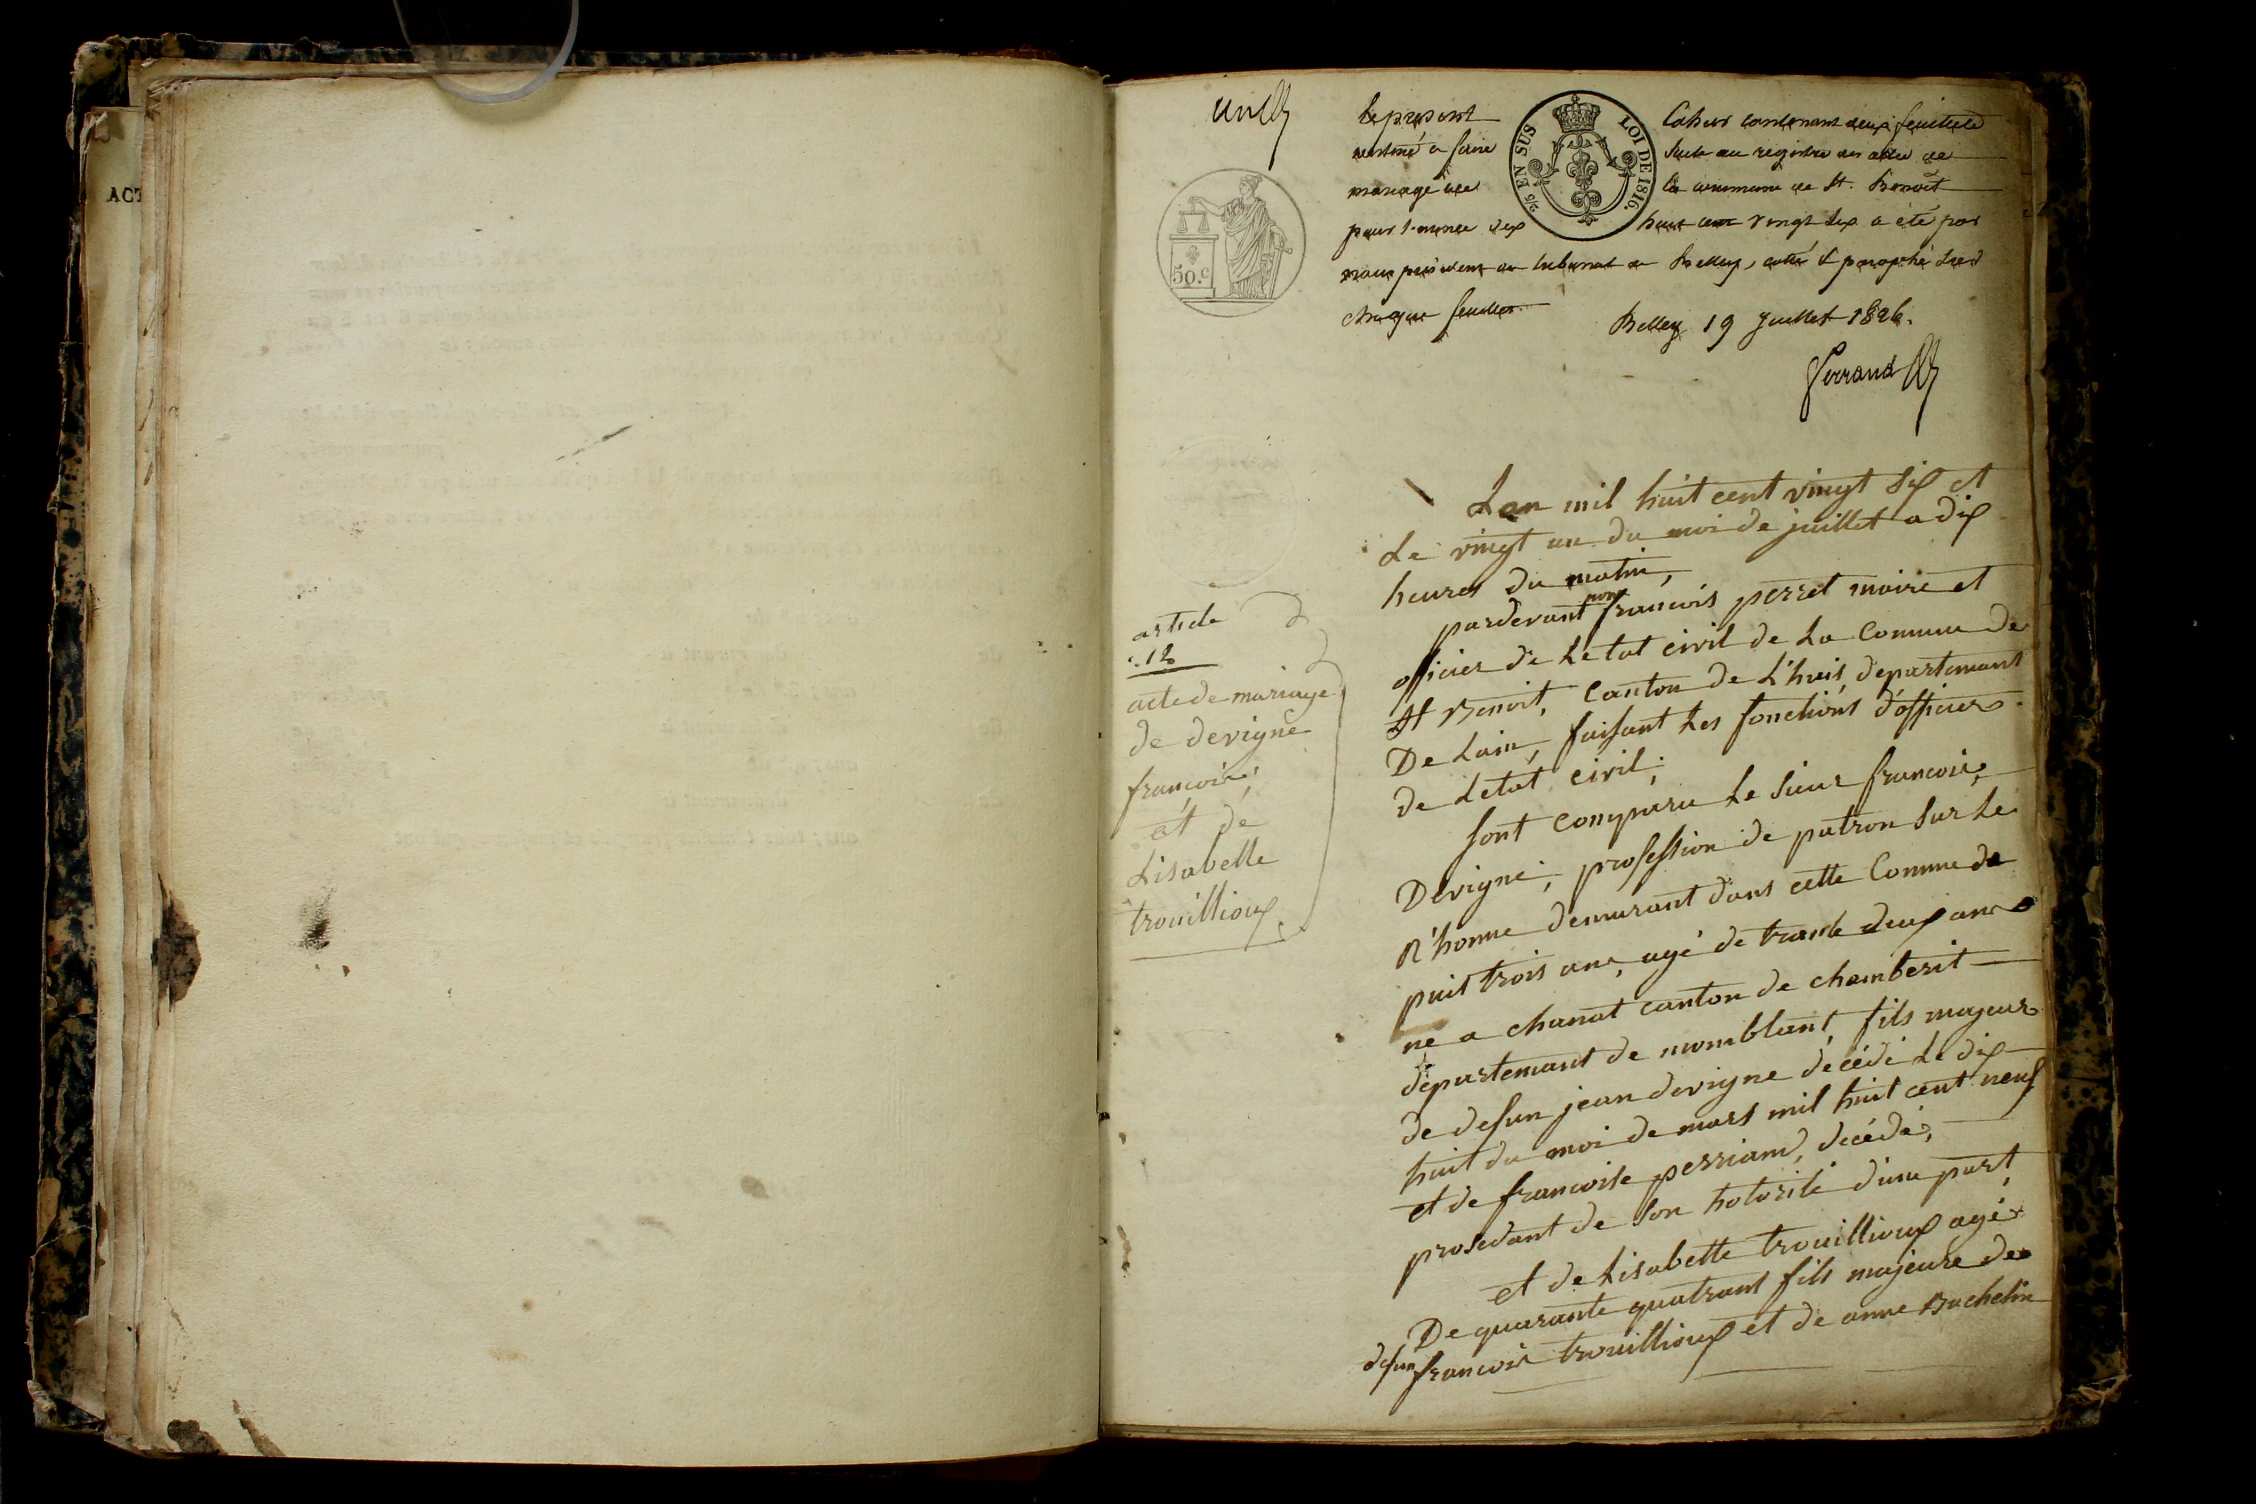 ACT
un
Le présent Cahier contenant deux feuillets
destiné a faire Suite au registre des actes de
mariage de la commune de St. Benoit
pour l'année dix huit cent vingt six a été par
nous président du tribunal de Belley, cotté & paraphé sur
chaque feuillet.
Belley 19 Juillet 1826.
Ferrand
2/5 EN SUS
LOI DE 1816.
50.c
article
12
acte de mariage
de devigne
françois,
et de
Lisabelle
trouillioux
Lan mil huit cent vingt six et
Le vingt un du moi de juillet a dix
heures du matin,
pardevant nous francois perret maire et
officier de Letat civil de La Commune de
St Benoit, Canton de L'huis, departemant
De Lain, faisant Les fonctions d'officier
de Letat civil;
sont comparu Le sieur francois,
Devigne, profession de patron sur Le
R'honne demurant dans cette Comune de
puis trois anc, agé de trante deux anc
ne a chanat canton de chamberit
departemant de momblant, fils majeur
de defun jean devigne décédé Le dix
huit du moi de mars mil huit cent neuf
et de francoise perriand, décédé,
prosedant de son hotorité d'une part,
et de Lisabette trouillioux agé
De quarante quatrant fils majeure de
defun francois trouillioux et de anne Bachelin